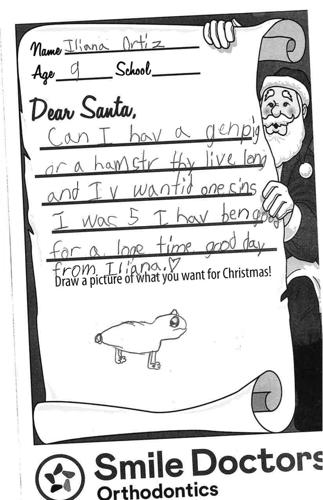 Name Iliana Ortiz
Age 9 School
Dear Santa,
Can I hav a genpig
or a hamstr thy live long
and I v wantid one sins
I was 5 I hav ben good
for a lone time good day
from Iliana.♡
Draw a picture of what you want for Christmas!
Smile Doctors
Orthodontics